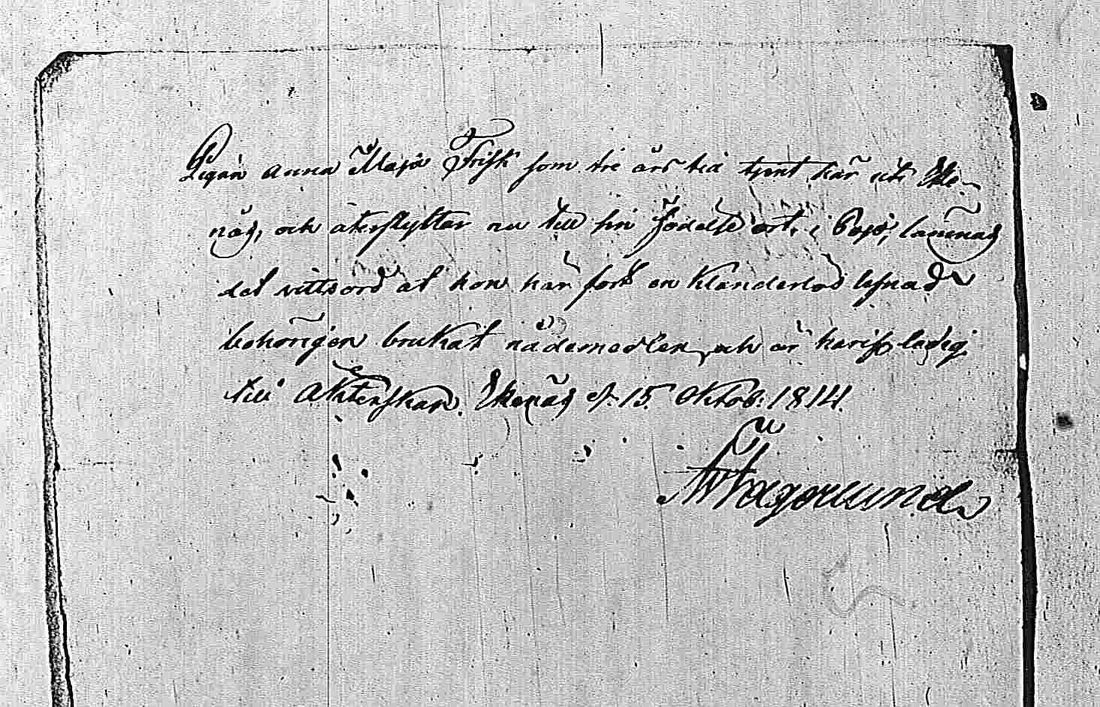 Pigan Anna Maja Frisk som tre års tid tjent här uti Eke-
näs, och återflyttar nu till sin Födelse ort, i Pojo, lämnas
det vittsord at hon här fört en klanderlös lefnad
behörigen brukat nådemedlen, och är härifr. ledig
till Äktenskap. Ekenäs d. 15. Oktob: 1814.
Fagerlund